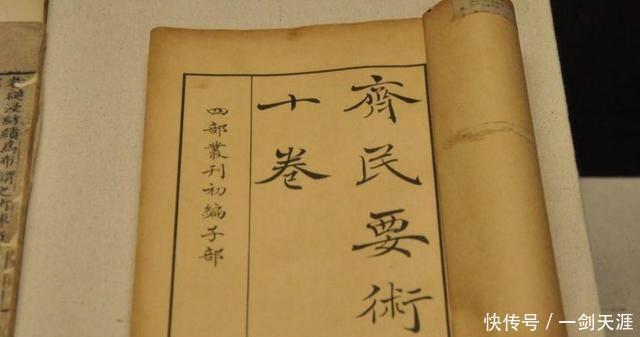 齊民要術
十卷
四部叢刊初編子部
快传号／一剑天涯